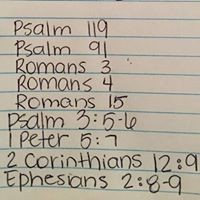 Psalm 119
Psalm 91
Romans 3
Romans 4
Romans 15
Psalm 3:5-6
1 Peter 5:7
2 Corinthians 12:9
Ephesians 2:8-9